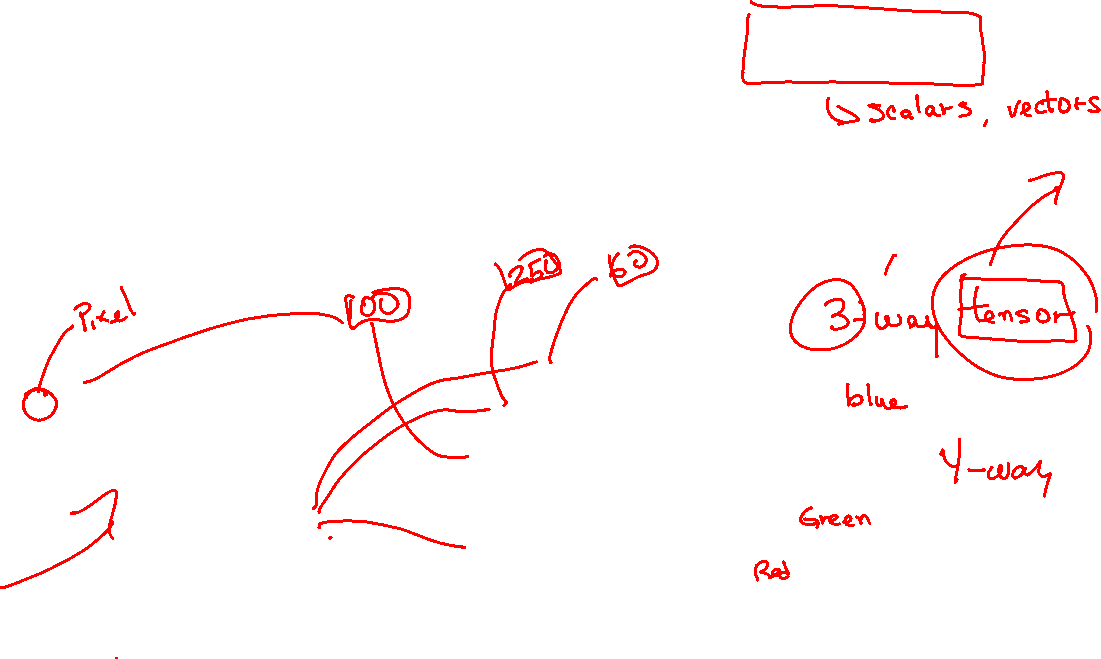 scalars, vectors
250
60
Pixel
100
3-way tensor
blue
4-way
Green
Red